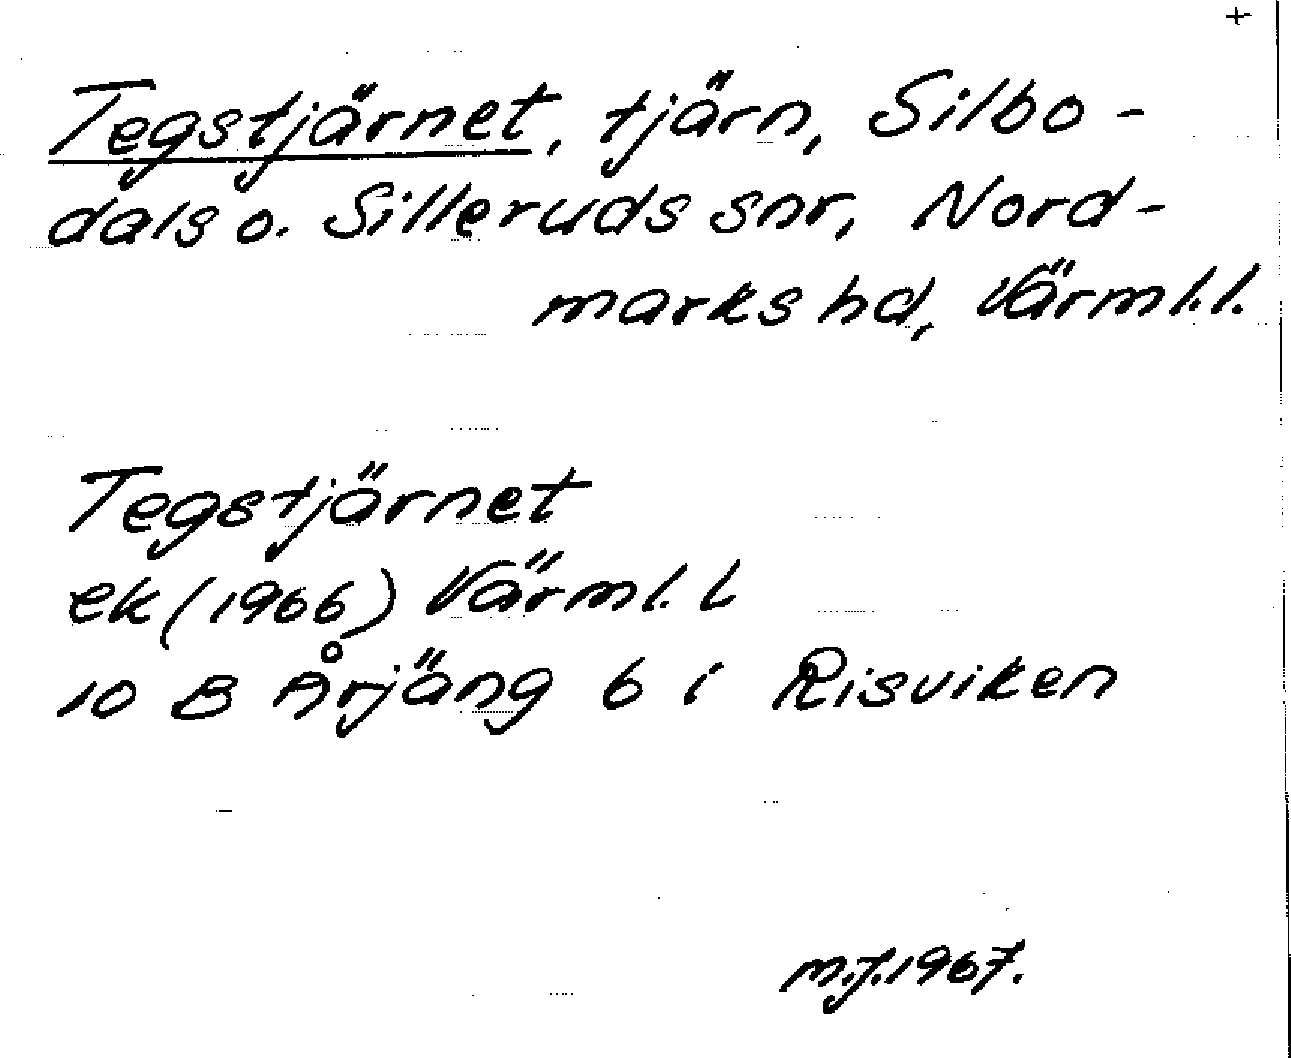 +
Tegstjärnet, tjärn, Silbo-
dals o. Silleruds snr, Nord-
marks hd, Värml.l.
Tegstjärnet
ek (1966) Värml. L
10 B Årjäng 6 i Risviken
M.J.1967.